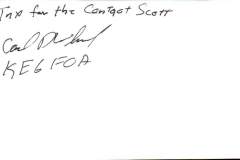 Tnx for the Contact Scott
Carl
KE6FOA